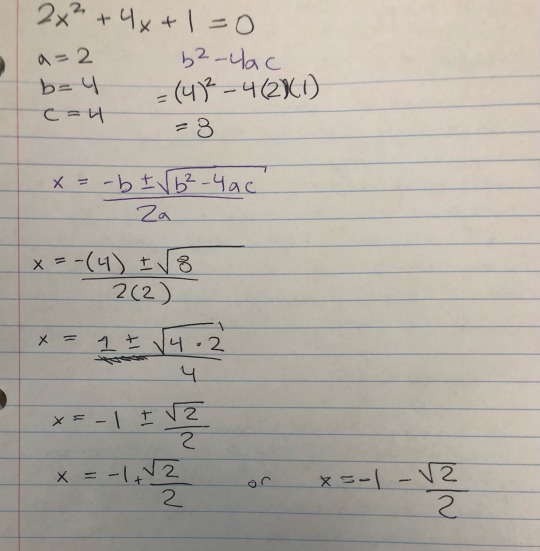 2x² + 4x + 1 = 0
a = 2 b² - 4ac
b = 4 = (4)² - 4(2)(1)
c = 4 = 8
x = -b ± √b² - 4ac
2a
x = -(4) ± √8
2(2)
x = 1 ± √4 · 2
4
x = -1 ± √2
2
x = -1 + √2 or x = -1 - √2
2 2